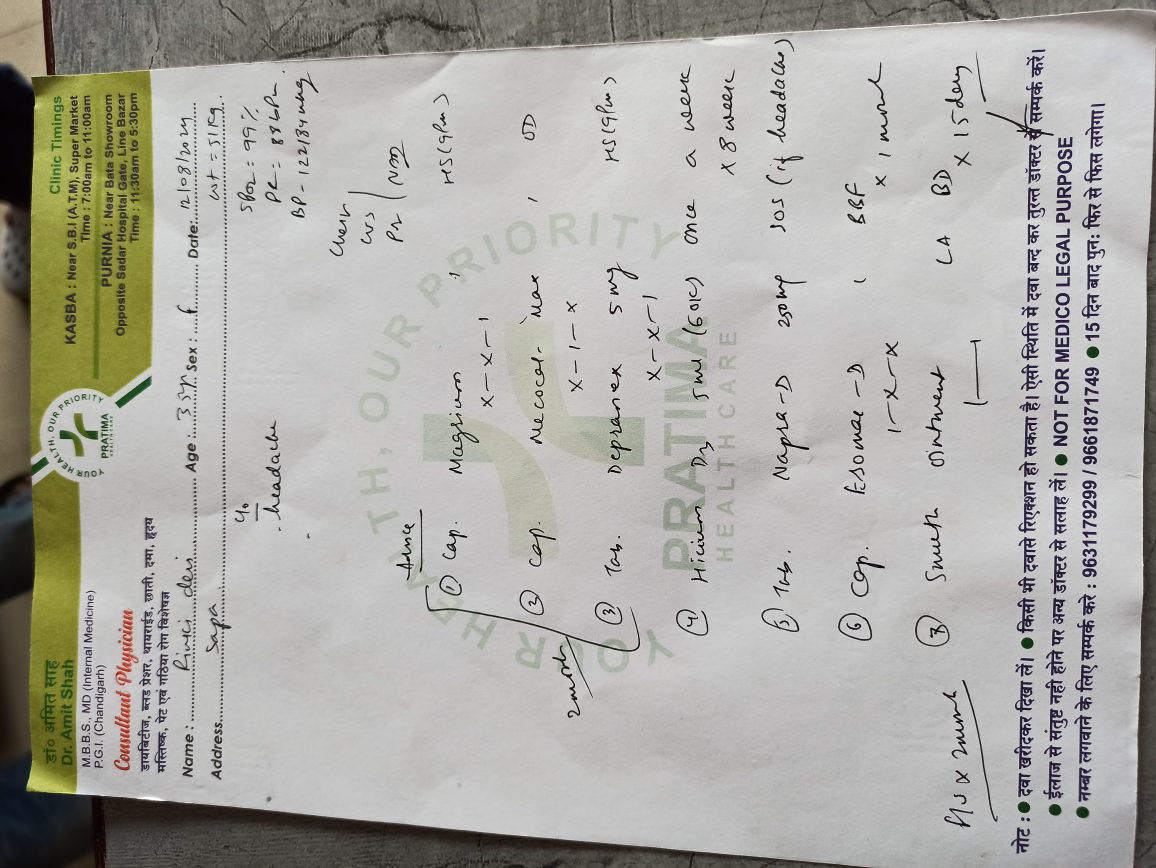 डॉ० अमित साह
Dr. Amit Shah
M.B.B.S., MD (Internal Medicine)
P.G.I. (Chandigarh)
Consultant Physician
डायबिटीज, ब्लड प्रेशर, थायराईड, छाती, दमा, हृदय
मस्तिष्क, पेट एवं गठिया रोग विशेषज्ञ
YOUR HEALTH, OUR PRIORITY
PRATIMA
Clinic Timings
KASBA : Near S.B.I (A.T.M), Super Market
Time : 7:00am to 11:00am
PURNIA : Near Bata Showroom
Opposite Sadar Hospital Gate, Line Bazar
Time : 11:30am to 5:30pm
Name : Rinki devi Age : 35yr Sex : f Date: 12/08/2024
Address Sapa wt = 51 kg
SPO2 = 99%
PR = 88 bpm.
BP - 122/84 mmhg
c/o
- headache
Chest
CVS
Advice
① Cap. Magnium 1 HS (9Pm)
x-x-1
② Cap. Mecocal-Max 1 OD
x-1-x
③ Tab. Depranex 5mg HS (9Pm)
x-x-1
2 month
④ D3 5ml (60K) once a week
x 8 week
⑤ Tab. Napra-D 250mg SOS (if headache)
⑥ Cap. Esomac-D 1 BBF
1-x-x x 1 month
Smuth ointment LA BD
x 15 days
x 2 month
YOUR HEALTH, OUR PRIORITY
PRATIMA
HEALTHCARE
नोट : ● दवा खरीदकर दिखा लें। ● किसी भी दवासे रिएक्शन हो सकता है। ऐसी स्थिति में दवा बन्द कर तुरन्त डॉक्टर से सम्पर्क करें।
● ईलाज से संतुष्ट नही होने पर अन्य डॉक्टर से सलाह लें। ● NOT FOR MEDICO LEGAL PURPOSE
● नम्बर लगवाने के लिए सम्पर्क करे : 9631179299 / 9661871749 ● 15 दिन बाद पुन: फिर से फिस लगेगा।